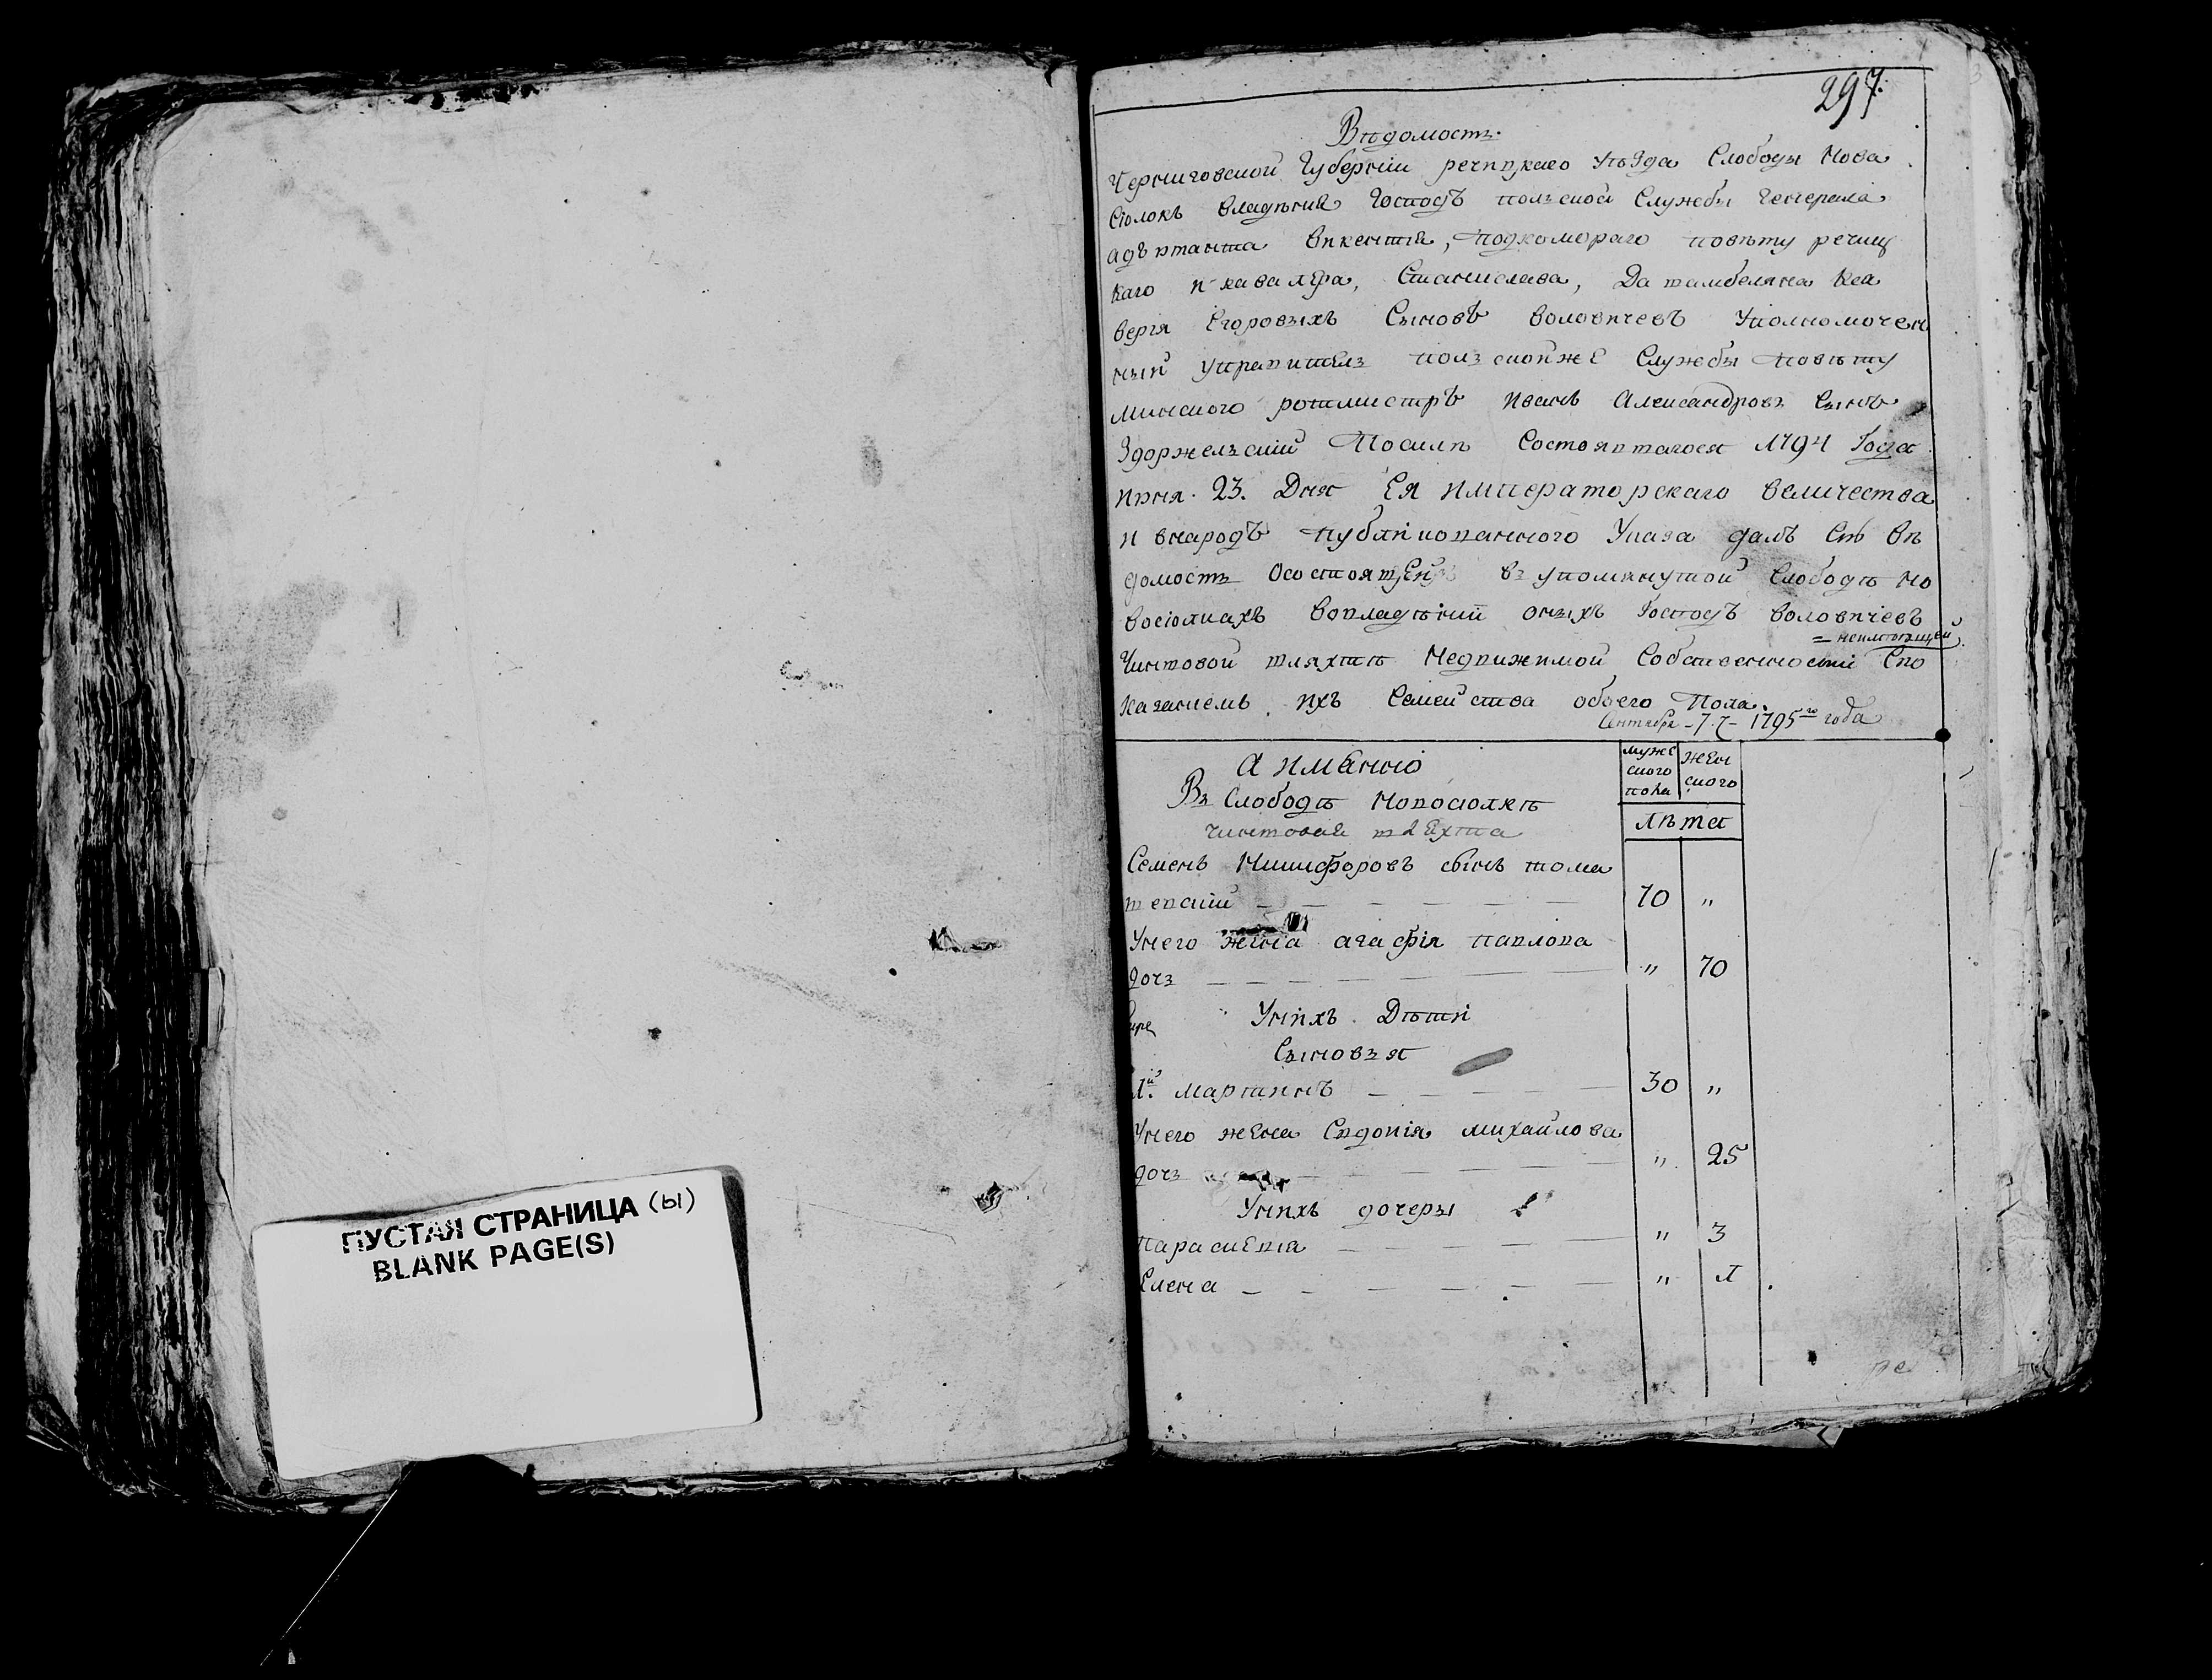 ПУСТАЯ СТРАНИЦА (Ы)
BLANK PAGE(S)
297.
Вѣдомость.
Черниговской Губерніи речицкаго уѣзда Слободы Нова
сюлокъ владѣния Господъ полской Службы Генерала
адъютанта викентія, подкомораго повѣту речиц
каго и кавалера, Станислава, Да шамбеляна Кса
верія Егоровыхъ Сыновъ воловичевъ Уполномочен
ный управитель полской же Службы повѣту
минского ротмистръ иванъ Александровъ Сынъ
Здоржельский По силѣ Состоявшагося 1794 Года
июня 23. Дня Ея императорскаго величества
и внародъ публикованного Указа далъ Сію вѣ
домость О состоящей въ упомянутой Слободѣ Но
восюлкахъ во владѣнии оныхъ Господъ воловичевъ
= неимеющей
Чиншовой шляхтѣ Недвижимой Собственности Спо
казанiемъ ихъ Семейства обоего Пола.
Сентября - 7. - 1795го года
А имянно
Въ Слободѣ Новосюлкѣ
чиншовая шляхта
муже
ского
пола
жен
ского
лѣта
Семенъ Никифоровъ сынъ тома
шевский 70 „
Унего жена агафія павлова
дочь „ 70
Унихъ Дѣти
Сыновья
1й. мартинъ 30 „
Унего жена Евдокія михайлова
дочь „ 25
Унихъ дочеры
параскевія „ 3
Елена „ 1